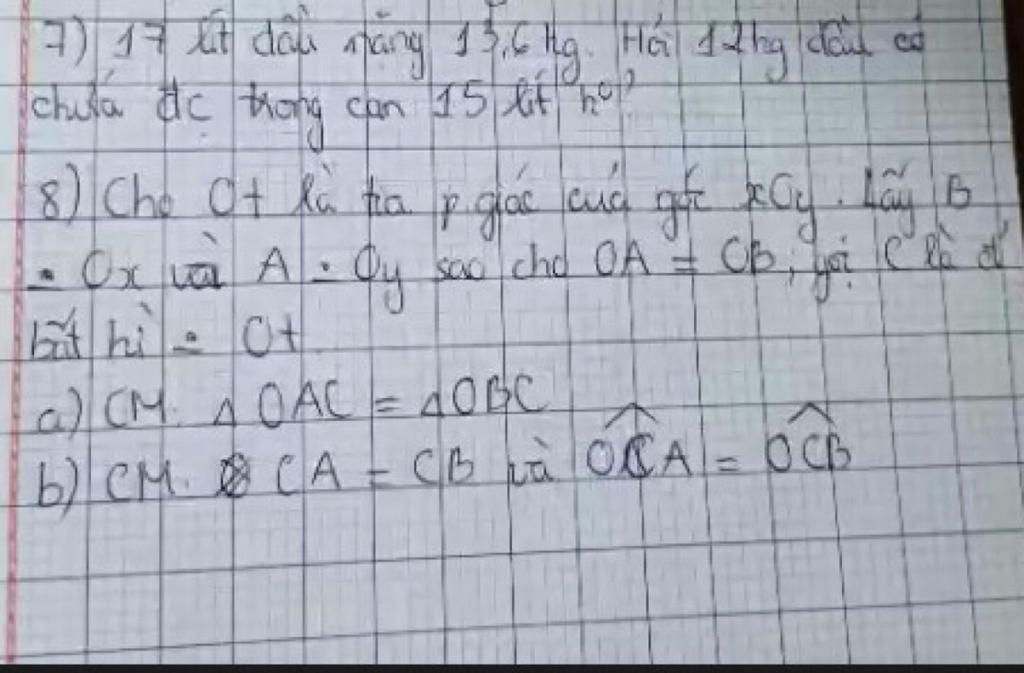 7) 17 lít dầu nặng 13,6 kg. Hỏi 12kg dầu có
chứa đc trong can 15 lít ko?
8) Cho Ot là tia p giác của góc xOy. Lấy B
∸ Ox và A ∸ Oy sao cho OA = OB, gọi C là đ'
bất kì ∸ Ot
a) CM. Δ OAC = Δ OBC
b) CM. CA = CB và \widehat{OCA} = \widehat{OCB}